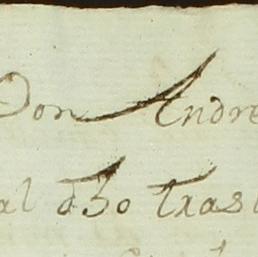 Don Andre
al dho tras